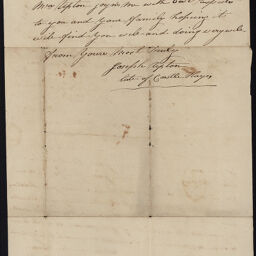 Mrs Upton joyns me with best respects
to you and your family hopeing it
will find you well and doing very well
from yours most truly
Joseph Upton
late of Castle Hayes